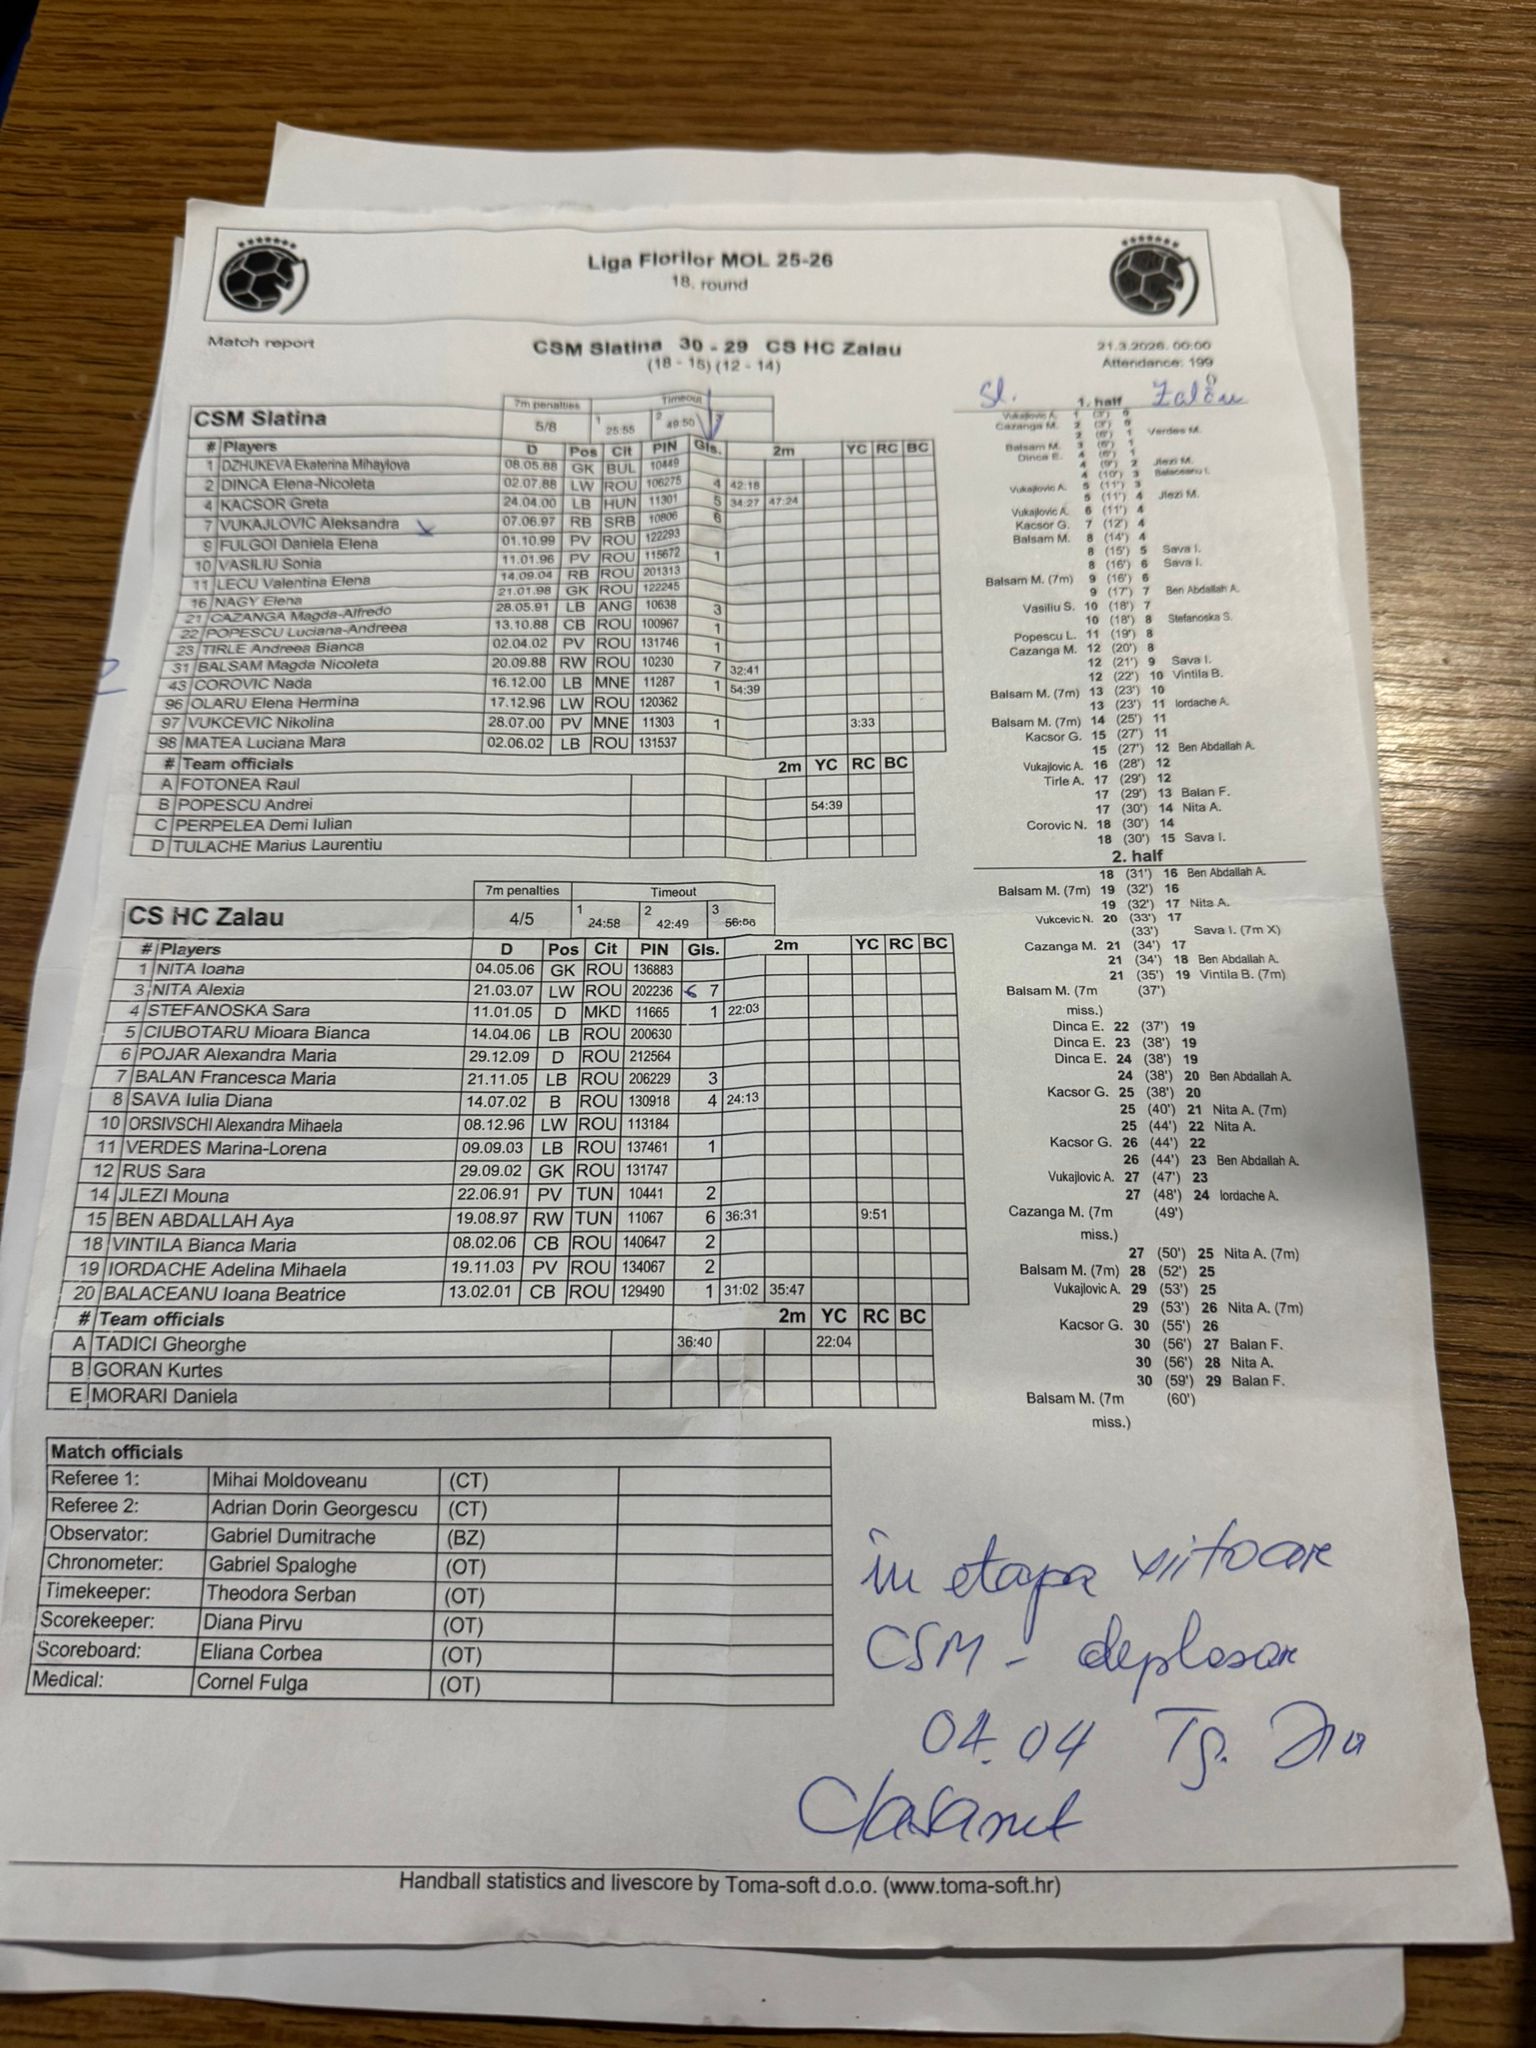 Liga Florilor MOL 25-26
18. round
Match report
CSM Slatina 30 - 29 CS HC Zalau
(18 - 15) (12 - 14)
21.3.2026. 00:00
Attendance: 199
CSM Slatina
7m penalties Timeout
5/8 1 25:55 2 49:50 3
# Players D Pos Cit PIN Gls. 2m YC RC BC
1 DZHUKEVA Ekaterina Mihaylova 08.05.88 GK BUL 10449
2 DINCA Elena-Nicoleta 02.07.88 LW ROU 106275 4 42:18
4 KACSOR Greta 24.04.00 LB HUN 11301 5 34:27 47:24
7 VUKAJLOVIC Aleksandra 07.06.97 RB SRB 10806 6
9 FULGOI Daniela Elena 01.10.99 PV ROU 122293
10 VASILIU Sonia 11.01.96 PV ROU 115672 1
11 LECU Valentina Elena 14.09.04 RB ROU 201313
16 NAGY Elena 21.01.98 GK ROU 122245
21 CAZANGA Magda-Alfredo 28.05.91 LB ANG 10638 3
22 POPESCU Luciana-Andreea 13.10.88 CB ROU 100967 1
23 TIRLE Andreea Bianca 02.04.02 PV ROU 131746 1
31 BALSAM Magda Nicoleta 20.09.88 RW ROU 10230 7 32:41
43 COROVIC Nada 16.12.00 LB MNE 11287 1 54:39
96 OLARU Elena Hermina 17.12.96 LW ROU 120362
97 VUKCEVIC Nikolina 28.07.00 PV MNE 11303 1 3:33
98 MATEA Luciana Mara 02.06.02 LB ROU 131537
# Team officials 2m YC RC BC
A FOTONEA Raul
B POPESCU Andrei 54:39
C PERPELEA Demi Iulian
D TULACHE Marius Laurentiu
CS HC Zalau
7m penalties Timeout
4/5 1 24:58 2 42:49 3 56:56
# Players D Pos Cit PIN Gls. 2m YC RC BC
1 NITA Ioana 04.05.06 GK ROU 136883
3 NITA Alexia 21.03.07 LW ROU 202236 6 7
4 STEFANOSKA Sara 11.01.05 D MKD 11665 1 22:03
5 CIUBOTARU Mioara Bianca 14.04.06 LB ROU 200630
6 POJAR Alexandra Maria 29.12.09 D ROU 212564
7 BALAN Francesca Maria 21.11.05 LB ROU 206229 3
8 SAVA Iulia Diana 14.07.02 B ROU 130918 4 24:13
10 ORSIVSCHI Alexandra Mihaela 08.12.96 LW ROU 113184
11 VERDES Marina-Lorena 09.09.03 LB ROU 137461 1
12 RUS Sara 29.09.02 GK ROU 131747
14 JLEZI Mouna 22.06.91 PV TUN 10441 2
15 BEN ABDALLAH Aya 19.08.97 RW TUN 11067 6 36:31 9:51
18 VINTILA Bianca Maria 08.02.06 CB ROU 140647 2
19 IORDACHE Adelina Mihaela 19.11.03 PV ROU 134067 2
20 BALACEANU Ioana Beatrice 13.02.01 CB ROU 129490 1 31:02 35:47
# Team officials 2m YC RC BC
A TADICI Gheorghe 36:40 22:04
B GORAN Kurtes
E MORARI Daniela
Match officials
Referee 1: Mihai Moldoveanu (CT)
Referee 2: Adrian Dorin Georgescu (CT)
Observator: Gabriel Dumitrache (BZ)
Chronometer: Gabriel Spaloghe (OT)
Timekeeper: Theodora Serban (OT)
Scorekeeper: Diana Pirvu (OT)
Scoreboard: Eliana Corbea (OT)
Medical: Cornel Fulga (OT)
Sl. 1. half Zalău
Vukajlovic A. 1 (3') 0
Cazanga M. 2 (3') 0
2 (6') 1 Verdes M.
Balsam M. 3 (6') 1
Dinca E. 4 (6') 1
4 (9') 2 Jlezi M.
4 (10') 3 Balaceanu I.
Vukajlovic A. 5 (11') 3
5 (11') 4 Jlezi M.
Vukajlovic A. 6 (11') 4
Kacsor G. 7 (12') 4
Balsam M. 8 (14') 4
8 (15') 5 Sava I.
8 (16') 6 Sava I.
Balsam M. (7m) 9 (16') 6
9 (17') 7 Ben Abdallah A.
Vasiliu S. 10 (18') 7
10 (18') 8 Stefanoska S.
Popescu L. 11 (19') 8
Cazanga M. 12 (20') 8
12 (21') 9 Sava I.
12 (22') 10 Vintila B.
Balsam M. (7m) 13 (23') 10
13 (23') 11 Iordache A.
Balsam M. (7m) 14 (25') 11
Kacsor G. 15 (27') 11
15 (27') 12 Ben Abdallah A.
Vukajlovic A. 16 (28') 12
Tirle A. 17 (29') 12
17 (29') 13 Balan F.
17 (30') 14 Nita A.
Corovic N. 18 (30') 14
18 (30') 15 Sava I.
2. half
18 (31') 16 Ben Abdallah A.
Balsam M. (7m) 19 (32') 16
19 (32') 17 Nita A.
Vukcevic N. 20 (33') 17
(33') Sava I. (7m X)
Cazanga M. 21 (34') 17
21 (34') 18 Ben Abdallah A.
21 (35') 19 Vintila B. (7m)
Balsam M. (7m (37')
miss.)
Dinca E. 22 (37') 19
Dinca E. 23 (38') 19
Dinca E. 24 (38') 19
24 (38') 20 Ben Abdallah A.
Kacsor G. 25 (38') 20
25 (40') 21 Nita A. (7m)
25 (44') 22 Nita A.
Kacsor G. 26 (44') 22
26 (44') 23 Ben Abdallah A.
Vukajlovic A. 27 (47') 23
27 (48') 24 Iordache A.
Cazanga M. (7m (49')
miss.)
27 (50') 25 Nita A. (7m)
Balsam M. (7m) 28 (52') 25
Vukajlovic A. 29 (53') 25
29 (53') 26 Nita A. (7m)
Kacsor G. 30 (55') 26
30 (56') 27 Balan F.
30 (56') 28 Nita A.
30 (59') 29 Balan F.
Balsam M. (7m (60')
miss.)
în etapa viitoare
CSM - deplasare
04.04 Tg. Jiu
Clasament
Handball statistics and livescore by Toma-soft d.o.o. (www.toma-soft.hr)